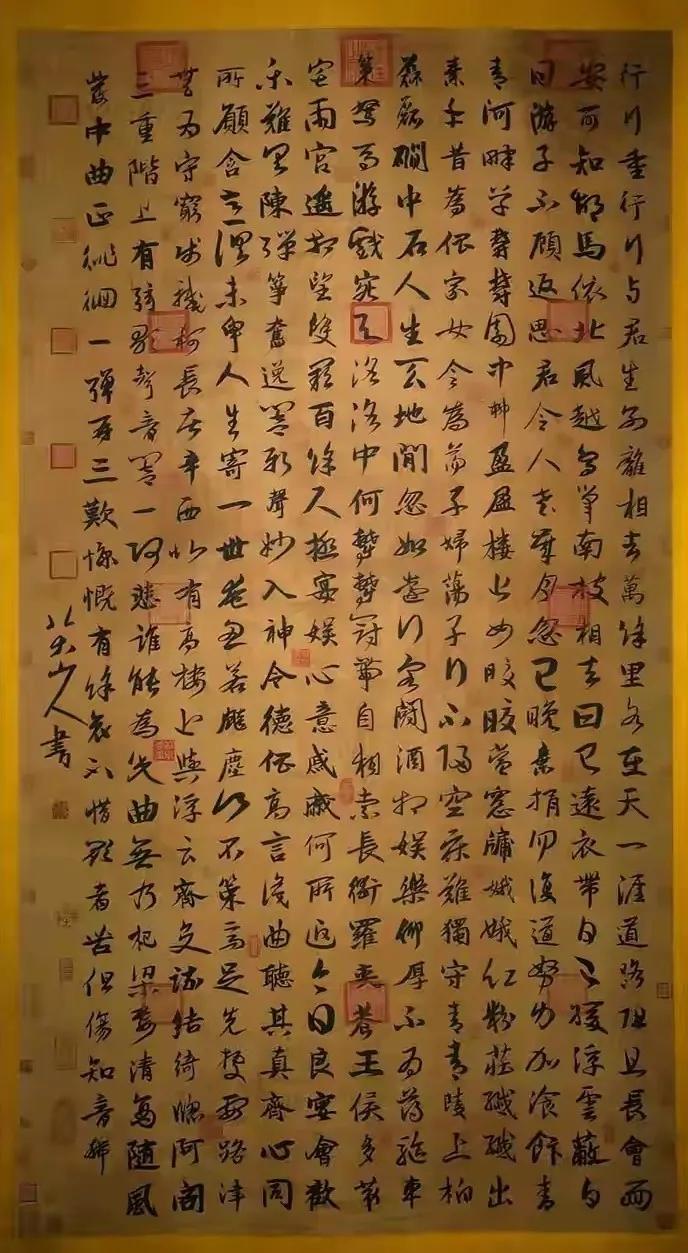 行行重行行与君生别離相去萬餘里各在天一涯道路阻且長會面
安可知胡馬依北風越鳥巢南枝相去日已遠衣帶日已緩浮雲蔽白
日游子不顧返思君令人老歲月忽已晚棄捐勿復道努力加飡飰青
青河畔草鬱鬱園中柳盈盈樓上女皎皎當窓牖娥娥红粉莊纖纖出
素手昔為倡家女今為蕩子婦蕩子行不歸空床難獨守青青陵上柏
磊磊磵中石人生天地間忽如遠行客闘酒相娱樂聊厚不為薄駈車
策駑馬游戲宛与洛洛中何鬱鬱冠帶自相索長衢羅夾巷王侯多第
宅兩宫遥相望雙闕百餘尺極宴娱心意戚戚何所迫今日良宴會歡
樂難具陳彈箏奮逸響新聲妙入神令德倡高言識曲聽其真齊心同
所願含意俱未申人生寄一世奄忽若飇塵何不策高足先據要路津
無為守窮賤轗軻長苦辛西北有高樓上與浮云齊交疏結綺牕阿閣
三重階上有弦歌聲音響一何悲誰能為此曲無乃杞梁妻清商随風
發中曲正徘徊一彈再三歎慷慨有餘哀不惜歌者苦但傷知音稀
八大山人書